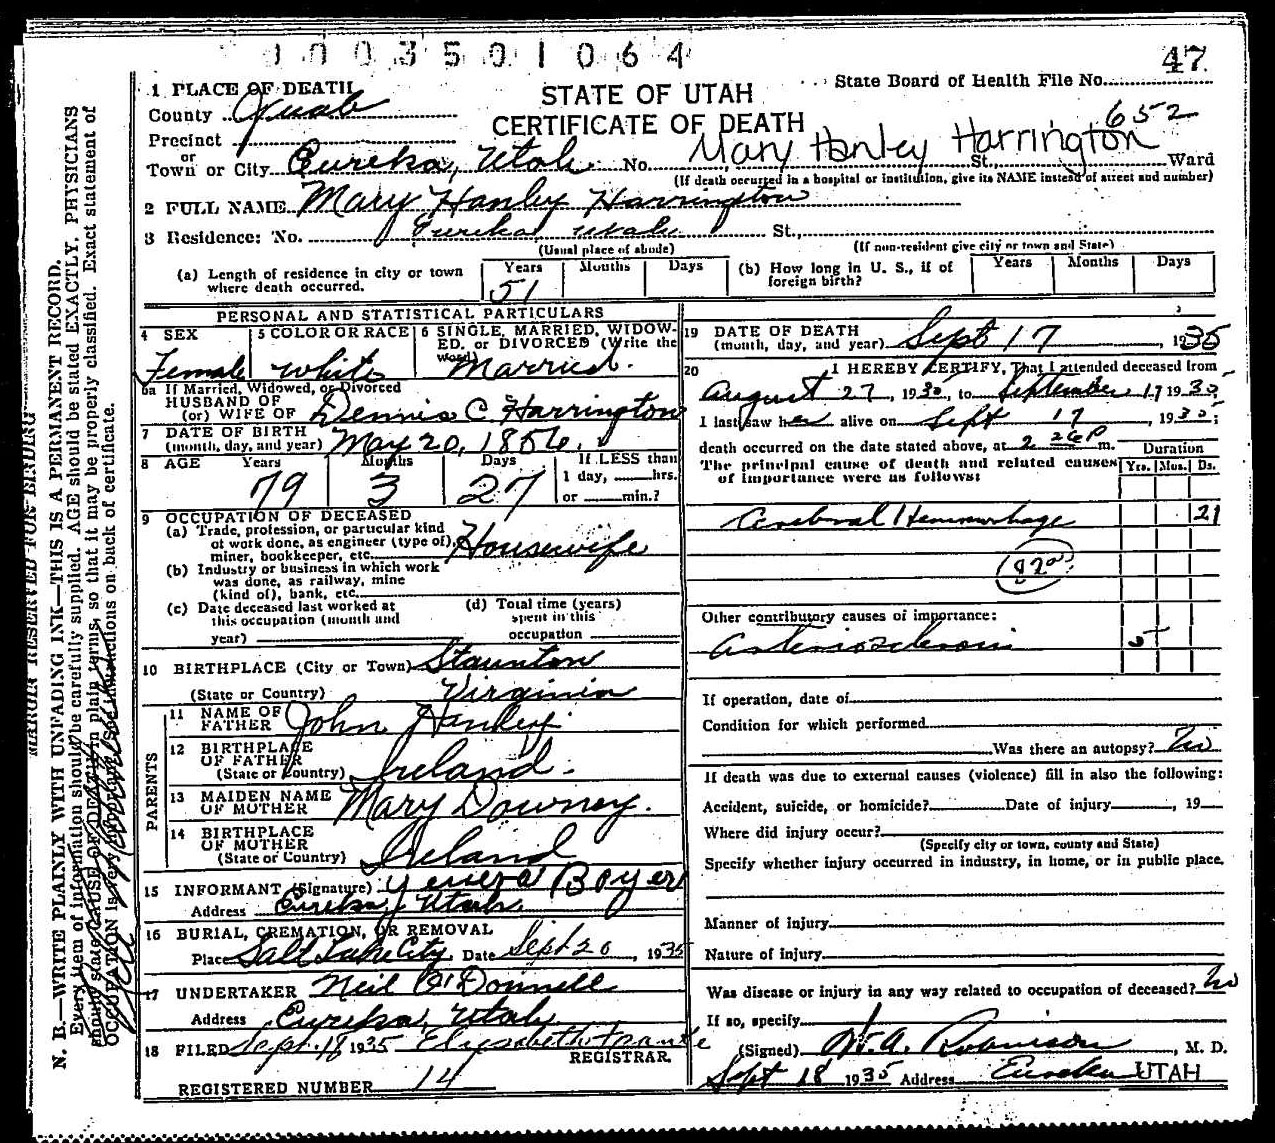 0003501064
47
State Board of Health File No.
652
STATE OF UTAH
CERTIFICATE OF DEATH
1 PLACE OF DEATH
County Juab
Precinct
or
Town or City Eureka, Utah No. Mary Hanley Harrington St., Ward
(If death occurred in a hospital or institution, give its NAME instead of street and number)
2 FULL NAME Mary Hanley Harrington
3 Residence: No. Eureka Utah St.,
(Usual place of abode) (If non-resident give city or town and State)
(a) Length of residence in city or town where death occurred. Years 51 Months Days
(b) How long in U. S., if of foreign birth? Years Months Days
PERSONAL AND STATISTICAL PARTICULARS
4 SEX Female
5 COLOR OR RACE White
6 SINGLE, MARRIED, WIDOWED, or DIVORCED (Write the word) Married.
6a If Married, Widowed, or Divorced
HUSBAND OF
(or) WIFE OF Dennis C. Harrington
7 DATE OF BIRTH
(month, day, and year) May 20, 1856.
8 AGE Years 79 Months 3 Days 27 If LESS than
1 day, hrs.
or min.?
9 OCCUPATION OF DECEASED
(a) Trade, profession, or particular kind
of work done, as engineer (type of),
miner, bookkeeper, etc. Housewife
(b) Industry or business in which work
was done, as railway, mine
(kind of), bank, etc.
(c) Date deceased last worked at
this occupation (month and
year)
(d) Total time (years)
spent in this
occupation
10 BIRTHPLACE (City or Town) Staunton
(State or Country) Virginia
PARENTS
11 NAME OF FATHER John Hanley.
12 BIRTHPLACE OF FATHER
(State or Country) Ireland.
13 MAIDEN NAME OF MOTHER Mary Downey.
14 BIRTHPLACE OF MOTHER
(State or Country) Ireland
15 INFORMANT (Signature) Boyer
Address Eureka, Utah.
16 BURIAL, CREMATION, OR REMOVAL
Place Salt Lake City Date Sept 20, 1935
17 UNDERTAKER Neil O'Donnell
Address Eureka, Utah
18 FILED Sept. 18 1935 Elizabeth
REGISTRAR.
REGISTERED NUMBER 14
19 DATE OF DEATH
(month, day, and year) Sept 17, 1935
20 I HEREBY CERTIFY, That I attended deceased from
August 27, 1935, to September 17 1935
I last saw her alive on Sept 17, 1935;
death occurred on the date stated above, at 2 26 P m.
The principal cause of death and related causes
of importance were as follows:
Duration
Yrs. Mos. Ds.
Cerebral Hemmorhage 21
Other contributory causes of importance:
Arteriosclerosis 5
If operation, date of
Condition for which performed
Was there an autopsy? No
If death was due to external causes (violence) fill in also the following:
Accident, suicide, or homicide? Date of injury , 19
Where did injury occur?
(Specify city or town, county and State)
Specify whether injury occurred in industry, in home, or in public place.
Manner of injury
Nature of injury
Was disease or injury in any way related to occupation of deceased? No
If so, specify
(Signed) W. A. Robinson, M. D.
Sept 18 1935 Address Eureka UTAH
MARGIN RESERVED FOR BINDING
N. B.—WRITE PLAINLY WITH UNFADING INK—THIS IS A PERMANENT RECORD.
Every item of information should be carefully supplied. AGE should be stated EXACTLY. PHYSICIANS
should state CAUSE OF DEATH in plain terms, so that it may be properly classified. Exact statement of
OCCUPATION is very important. See instructions on back of certificate.